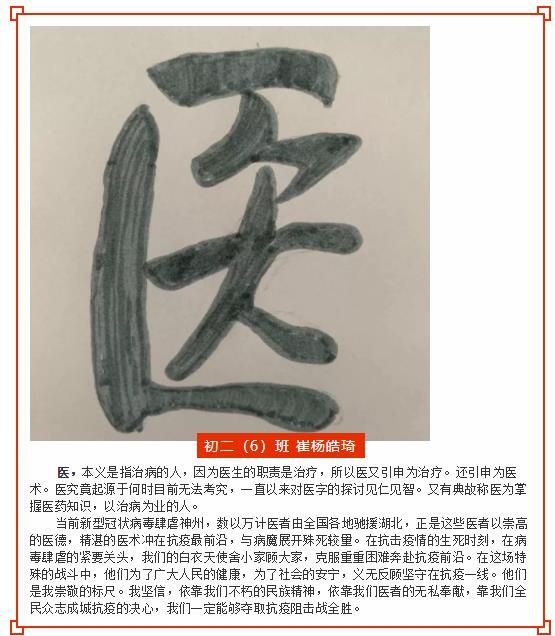 医
初二（6）班 崔杨皓琦
医，本义是指治病的人，因为医生的职责是治疗，所以医又引申为治疗。还引申为医
术。医究竟起源于何时目前无法考究，一直以来对医字的探讨见仁见智。又有典故称医为掌
握医药知识，以治病为业的人。
当前新型冠状病毒肆虐神州，数以万计医者由全国各地驰援湖北，正是这些医者以崇高
的医德，精湛的医术冲在抗疫最前沿，与病魔展开殊死较量。在抗击疫情的生死时刻，在病
毒肆虐的紧要关头，我们的白衣天使舍小家顾大家，克服重重困难奔赴抗疫前沿。在这场特
殊的战斗中，他们为了广大人民的健康，为了社会的安宁，义无反顾坚守在抗疫一线。他们
是我崇敬的标尺。我坚信，依靠我们不朽的民族精神，依靠我们医者的无私奉献，靠我们全
民众志成城抗疫的决心，我们一定能够夺取抗疫阻击战全胜。